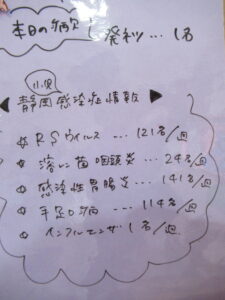 本日の病欠
発熱... 1名
小児
◀静岡感染症情報▶
☆ RSウイルス ... 121名/週
☆ 溶レン菌咽頭炎 ... 24名/週
☆ 感染性胃腸炎 ... 141名/週
☆ 手足口病 ... 114名/週
☆ インフルエンザ 1名/週